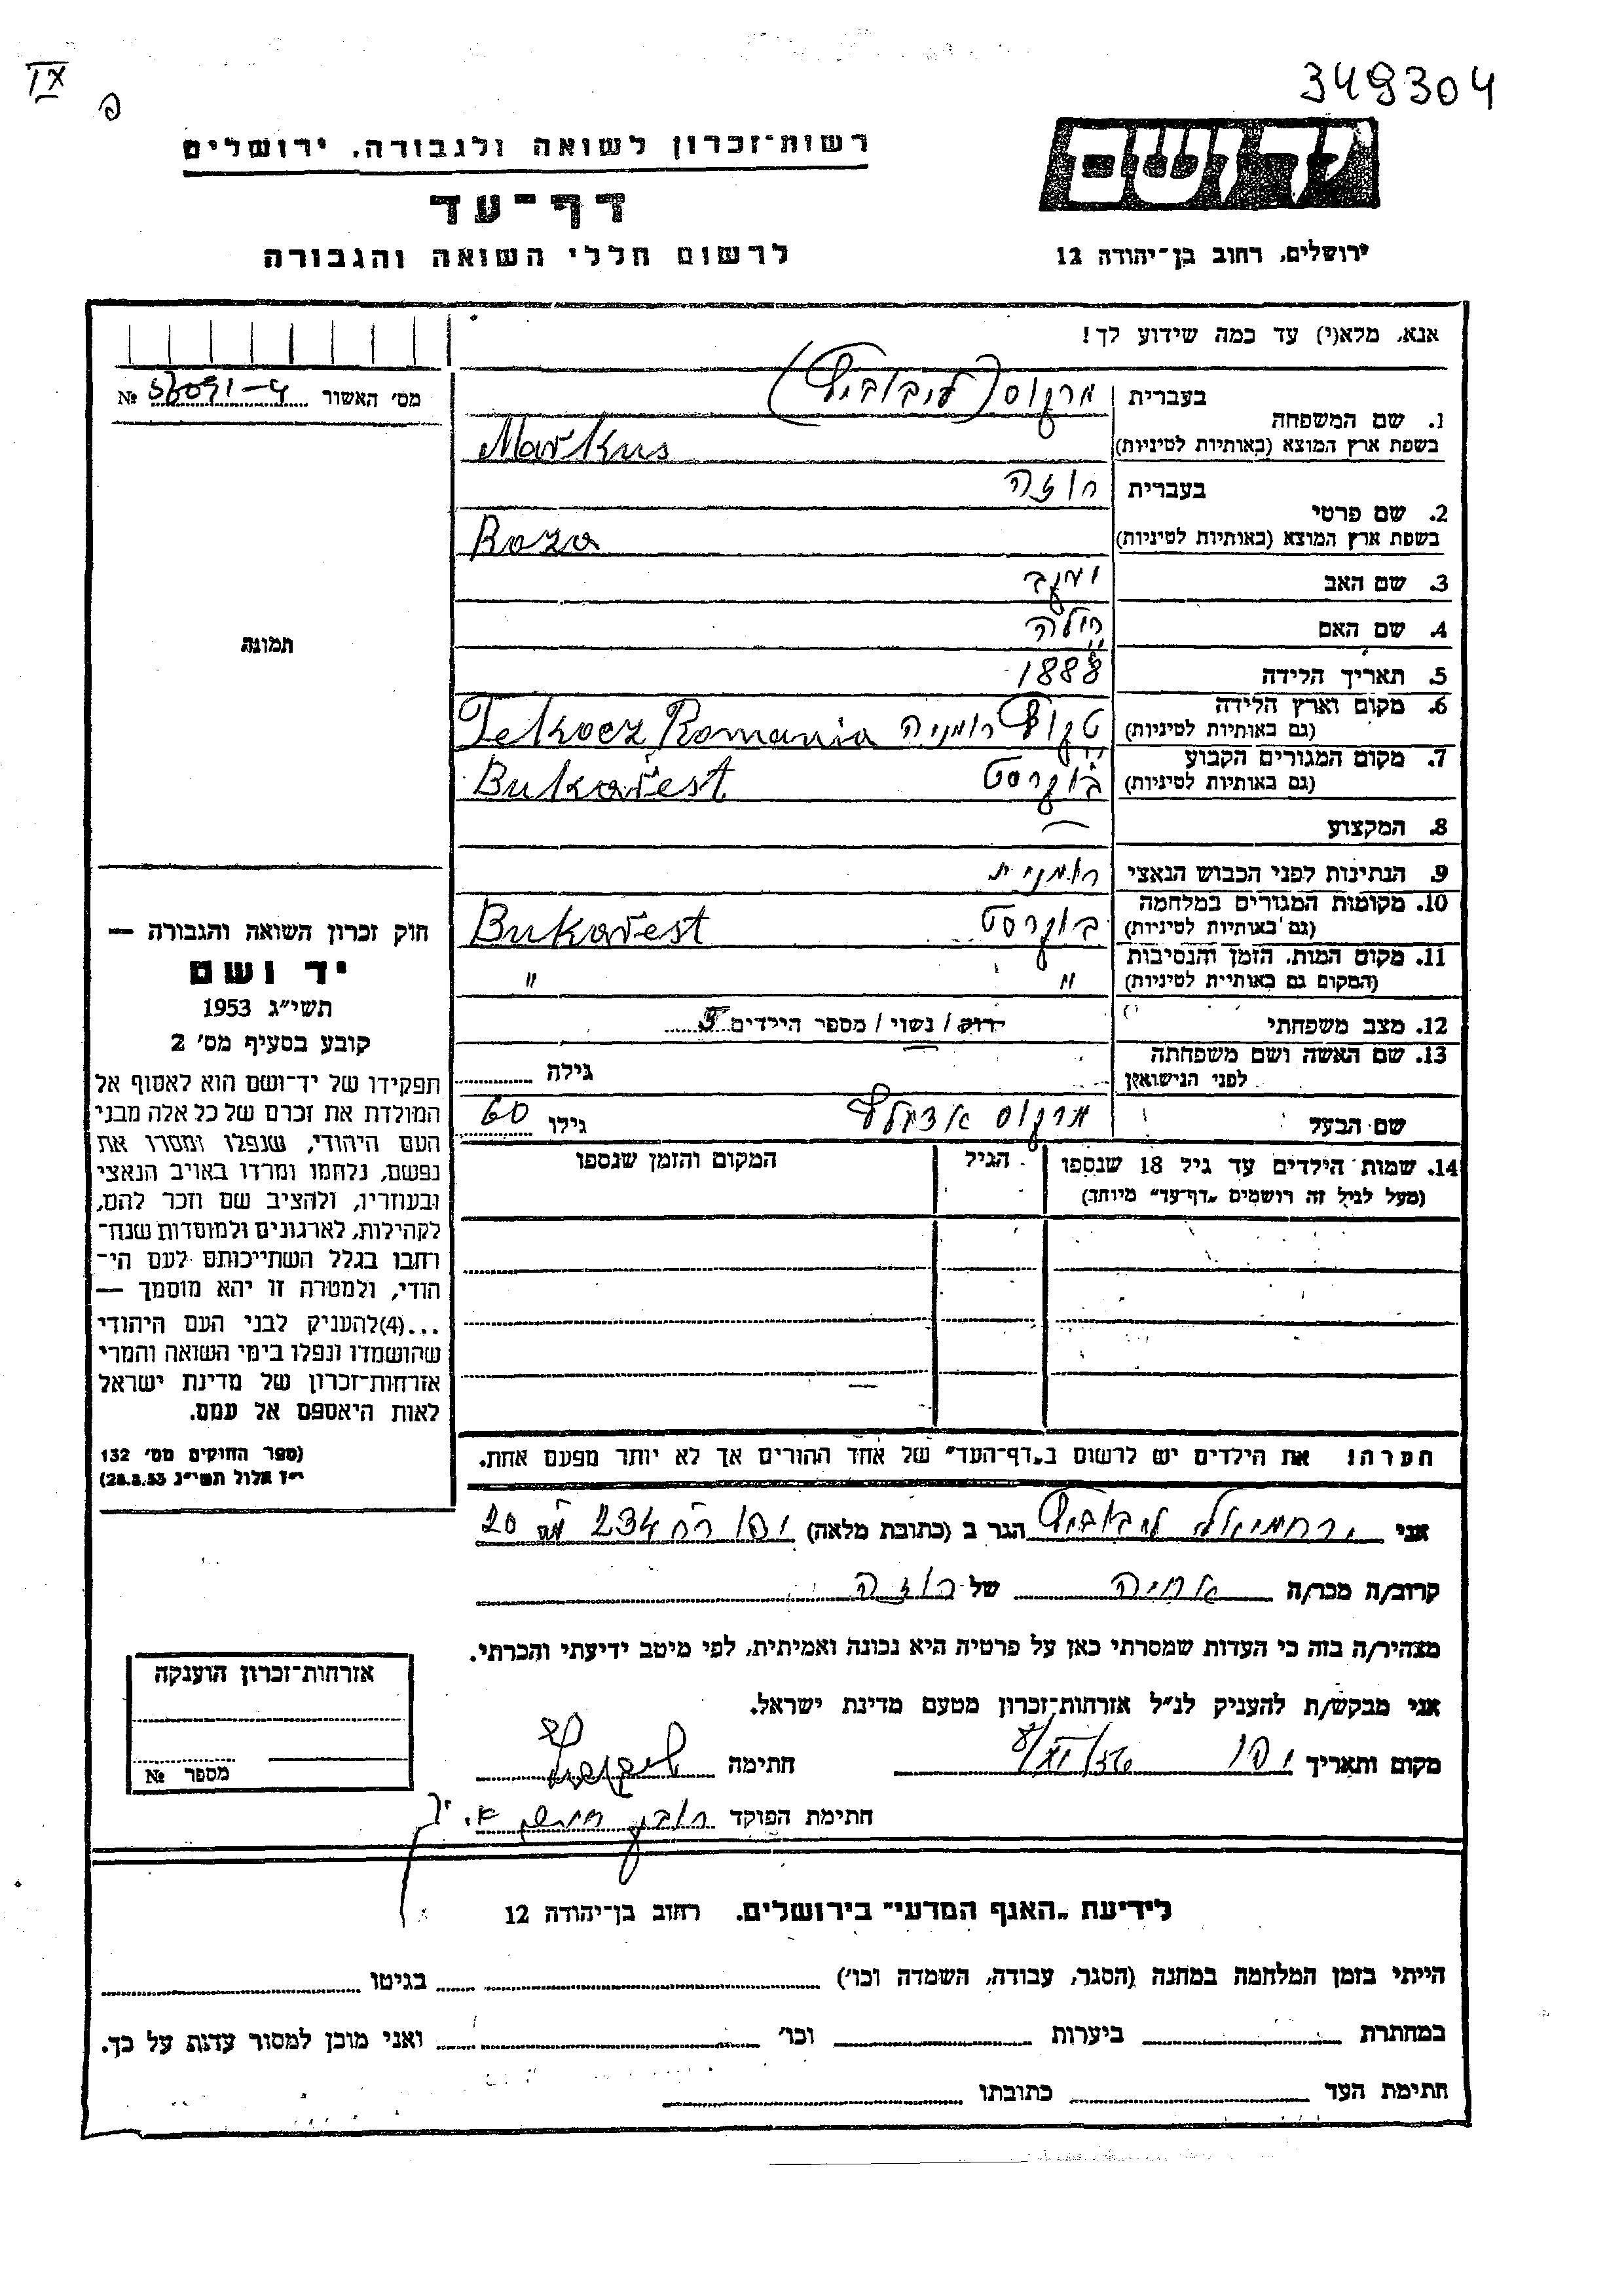 349304
רשות־זכרון לשואה ולגבורה, ירושלים
יד ושם
דף־עד
לרשום חללי השואה והגבורה
ירושלים, רחוב בן־יהודה 12
אנא, מלא(י) עד כמה שידוע לך!
מס' האשור № 56091-4
1. שם המשפחה
בעברית מרקוס (ליבוביץ)
בשפת ארץ המוצא (באותיות לטיניות) Markus
2. שם פרטי
בעברית רוזה
בשפת ארץ המוצא (באותיות לטיניות) Roza
3. שם האב יעקב
4. שם האם
תמונה
5. תאריך הלידה 1888
6. מקום וארץ הלידה
(גם באותיות לטיניות) טקוץ רומניה Tekocz Romania
7. מקום המגורים הקבוע
(גם באותיות לטיניות) בוקרסט Bukarest
8. המקצוע —
9. הנתינות לפני הכבוש הנאצי רומנית
10. מקומות המגורים במלחמה
(גם באותיות לטיניות) בוקרסט Bukarest
11. מקום המות, הזמן והנסיבות
(המקום גם באותיות לטיניות) " "
12. מצב משפחתי רווק / נשוי / מספר הילדים 5
13. שם האשה ושם משפחתה
לפני הנישואין גילה
שם הבעל מרקוס גילו 60
14. שמות הילדים עד גיל 18 שנספו הגיל המקום והזמן שנספו
(מעל לגיל זה רושמים "דף־עד" מיוחד)
חוק זכרון השואה והגבורה —
יד ושם
תשי"ג 1953
קובע בסעיף מס' 2
תפקידו של יד־ושם הוא לאסוף אל
המולדת את זכרם של כל אלה מבני
העם היהודי, שנפלו ומסרו את
נפשם, נלחמו ומרדו באויב הנאצי
ובעוזריו, ולהציב שם וזכר להם,
לקהילות, לארגונים ולמוסדות שנח־
רבו בגלל השתייכותם לעם הי־
הודי, ולמטרה זו יהא מוסמך —
...(4)להעניק לבני העם היהודי
שהושמדו ונפלו בימי השואה והמרי
אזרחות־זכרון של מדינת ישראל
לאות היאספם אל עמם.
(ספר החוקים מס' 132
י"ז אלול תשי"ג 28.8.53)
הערה! את הילדים יש לרשום ב"דף־העד" של אחד ההורים אך לא יותר מפעם אחת.
אני ירחמיאל ליבוביץ הגר ב (כתובת מלאה) יפו רח 234 מס 20
קרוב/ה מכר/ה אחיה של רוזה
מצהיר/ה בזה כי העדות שמסרתי כאן על פרטיה היא נכונה ואמיתית, לפי מיטב ידיעתי והכרתי.
אני מבקש/ת להעניק לנ"ל אזרחות־זכרון מטעם מדינת ישראל.
מקום ותאריך יפו חתימה
חתימת הפוקד
אזרחות־זכרון הוענקה
מספר №
לידיעת "האגף המדעי" בירושלים, רחוב בן־יהודה 12
הייתי בזמן המלחמה במחנה (הסגר, עבודה, השמדה וכו') בגיטו
במחתרת ביערות וכו' ואני מוכן למסור עדות על כך.
חתימת העד כתובתו